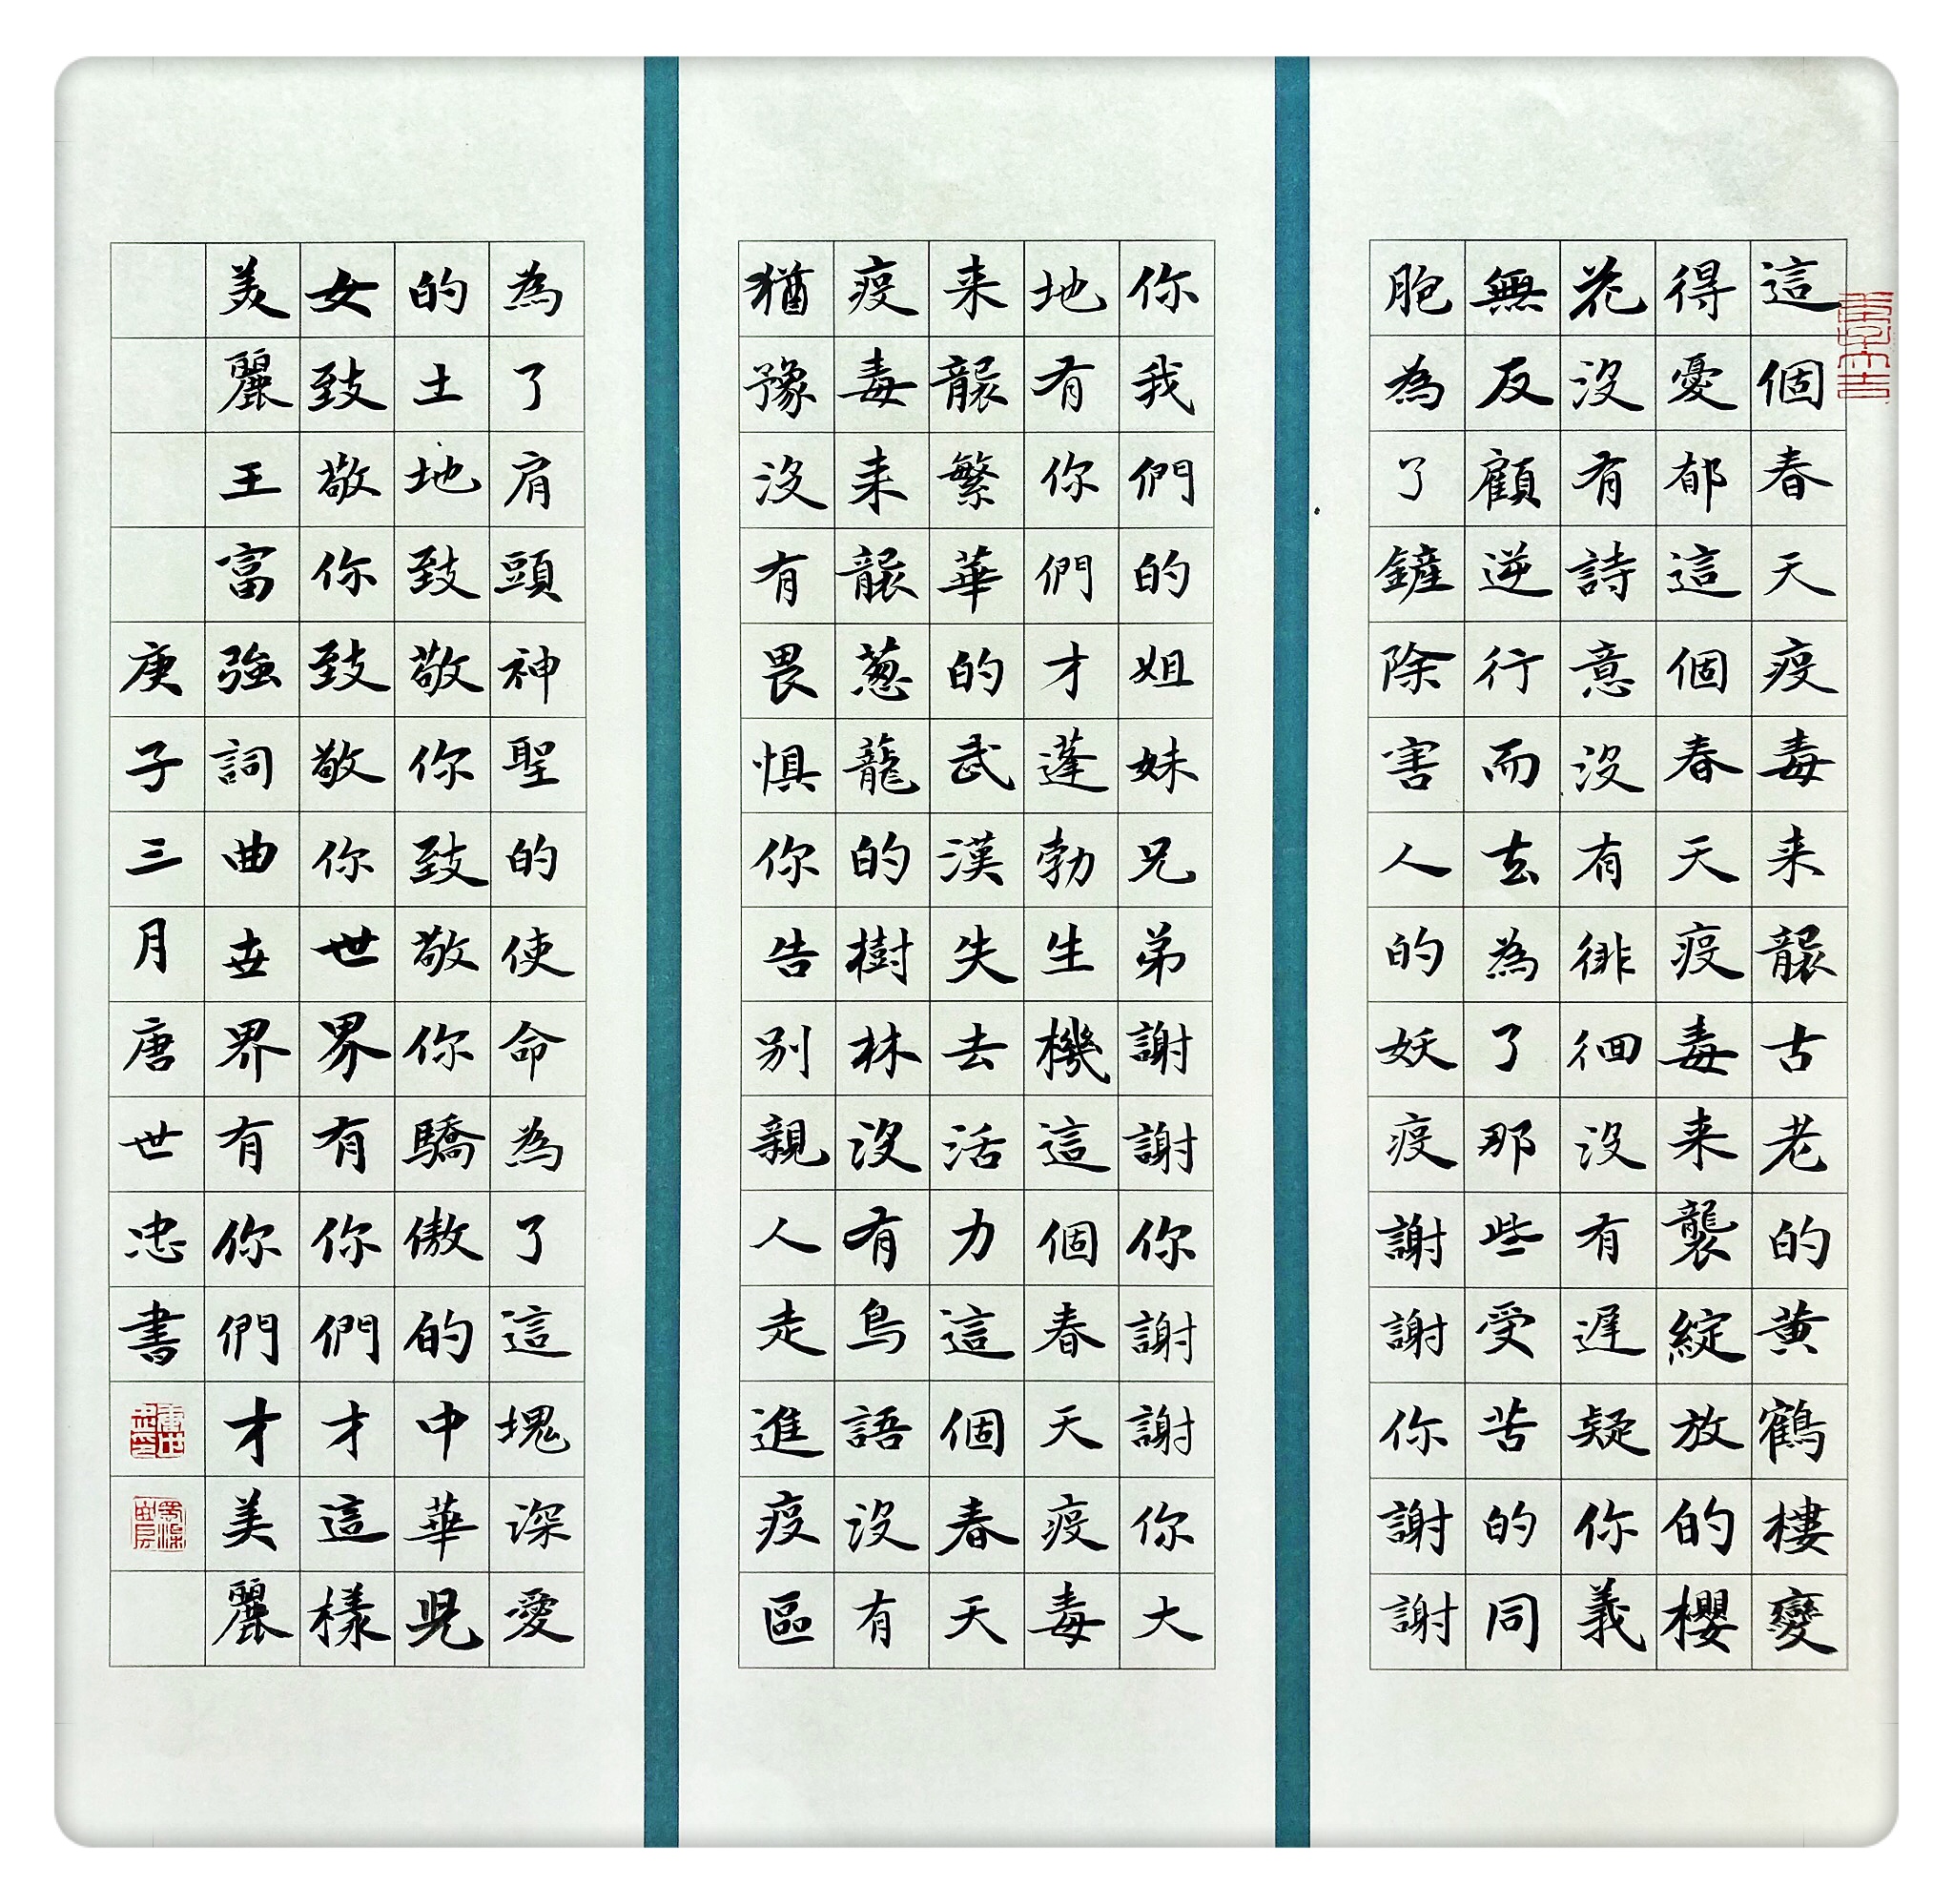 這個春天疫毒来襲古老的黄鶴樓變
得憂郁這個春天疫毒来襲綻放的櫻
花没有詩意没有徘徊没有遲疑你義
無反顧逆行而去為了那些受苦的同
胞為了鏟除害人的妖疫謝謝你謝謝
你我們的姐妹兄弟謝謝你謝謝你大
地有你們才蓬勃生機這個春天疫毒
来襲繁華的武漢失去活力這個春天
疫毒来襲葱龍的樹林没有鳥語没有
猶豫没有畏惧你告别親人走進疫區
為了肩頭神聖的使命為了這塊深愛
的土地致敬你致敬你驕傲的中華兒
女致敬你致敬你世界有你們才這樣
美麗王富強詞曲世界有你們才美麗
庚子三月唐世忠書